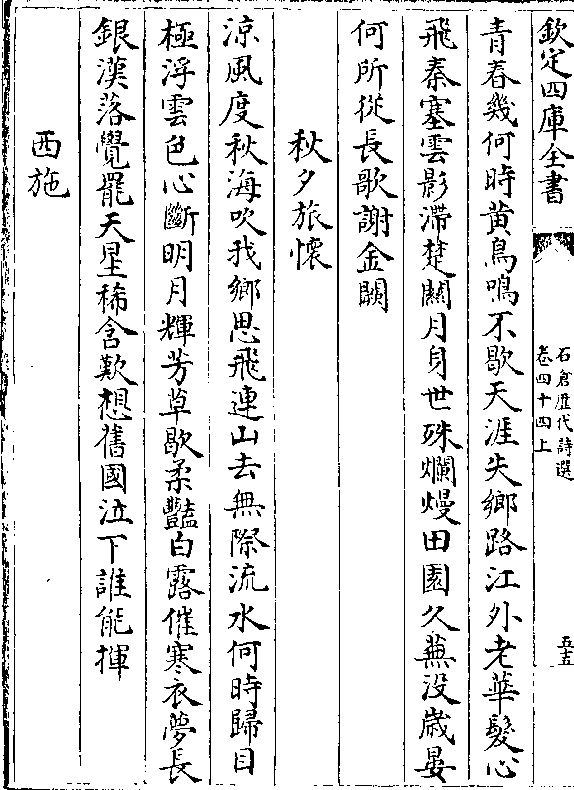 欽定四庫全書
石倉歴代詩選
卷四十四上
五十五
青春幾何時黄鳥鳴不歇天涯失鄉路江外老華髮心
飛秦塞雲影滯楚關月身世殊爛熳田園久蕪没歲晏
何所從長歌謝金闕
秋夕旅懷
涼風度秋海吹我鄉思飛連山去無際流水何時歸目
極浮雲色心斷明月輝芳草歇柔豔白露催寒衣夢長
銀漢落覺罷天星稀含歎想舊國泣下誰能揮
西施